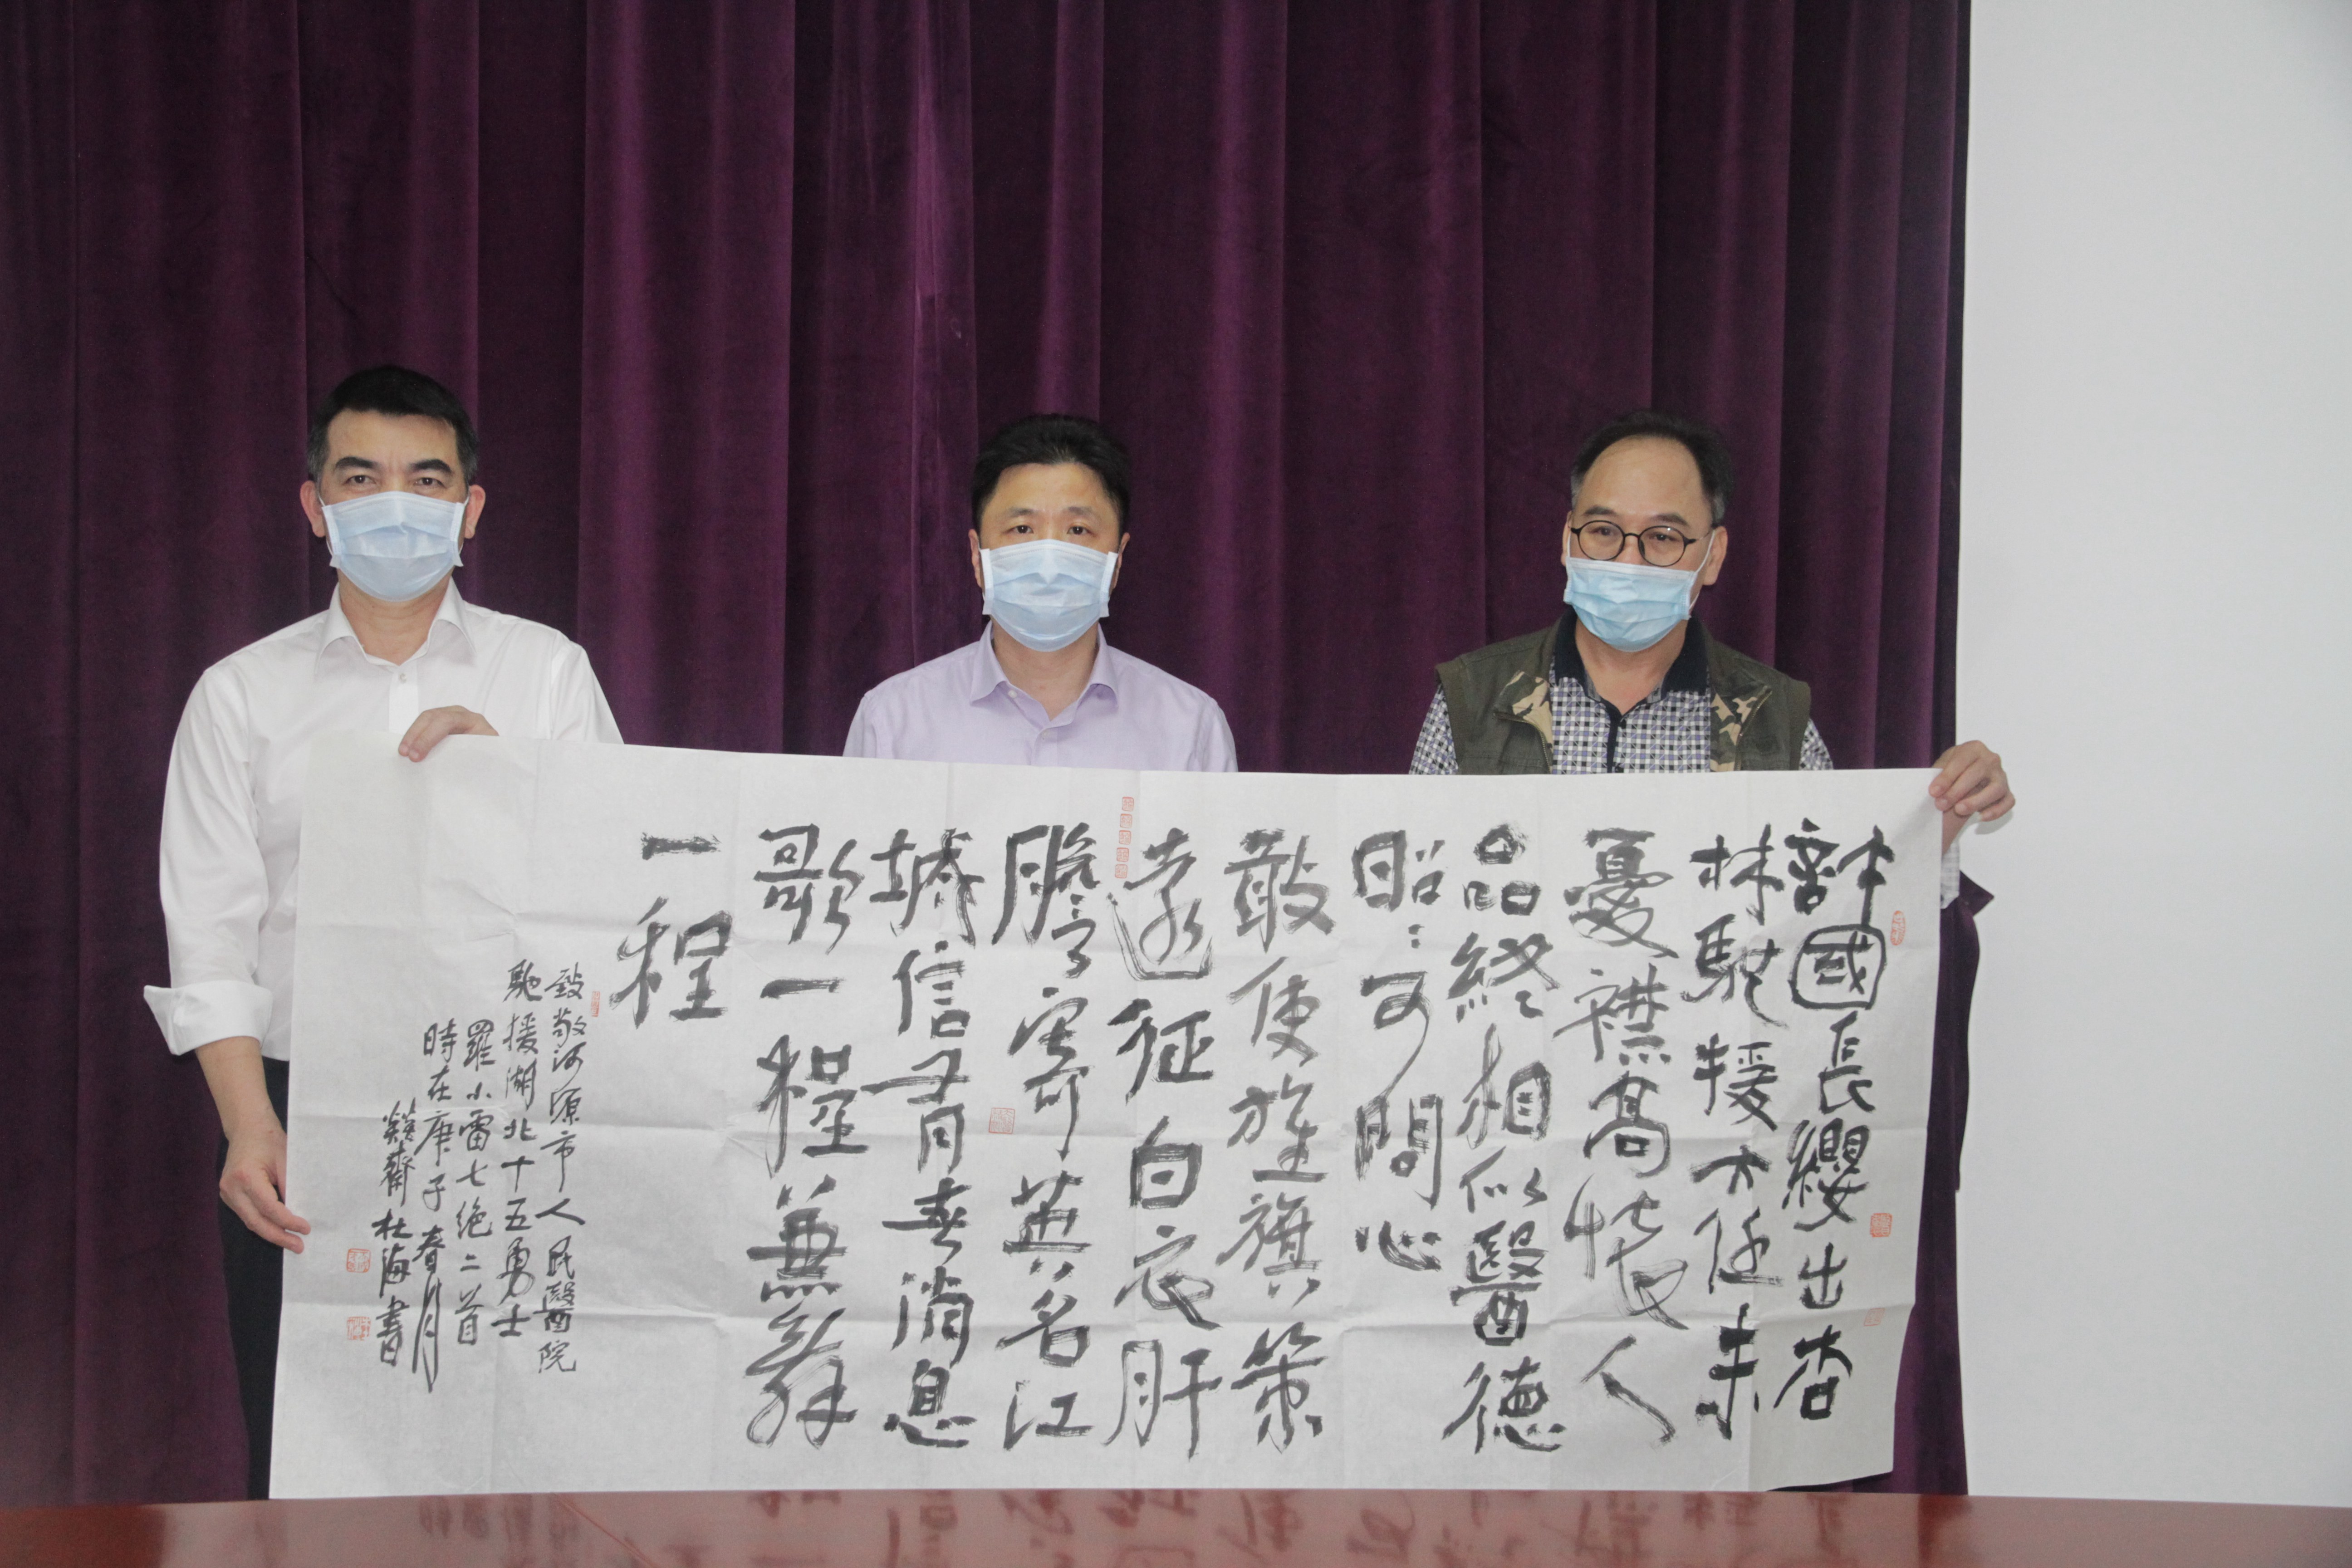 許國長纓出杏
林馳援方任未
憂襟高懷人
品終相似醫德
昭:可問心
敢使旌旗策
遠征白衣肝
膽寄英名江
城信有春消息
歌一程兼舞
一程
致敬河源市人民醫院
馳援湖北十五勇士
羅小雷七絶二首
時在庚子春月
齋杜海書